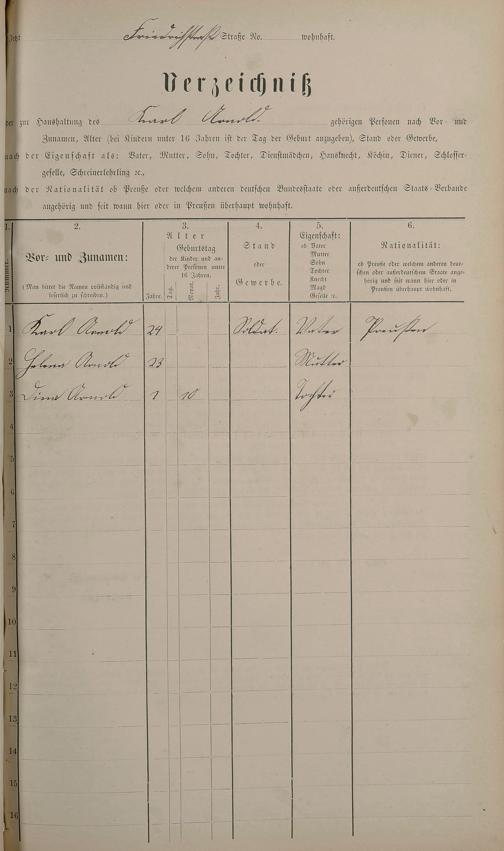 Jetzt Friedrichstraße Straße No. wohnhaft.
Verzeichniß
der zur Haushaltung des Karl Arnold gehörigen Personen nach Vor- und
Zunamen, Alter (bei Kindern unter 16 Jahren ist der Tag der Geburt anzugeben), Stand oder Gewerbe,
nach der Eigenschaft als: Vater, Mutter, Sohn, Tochter, Dienstmädchen, Hausknecht, Köchin, Diener, Schlosser-
geselle, Schreinerlehrling ꝛc.,
nach der Nationalität ob Preuße oder welchem anderen deutschen Bundesstaate oder außerdeutschen Staats-Verbande
angehörig und seit wann hier oder in Preußen überhaupt wohnhaft.
1. 2. 3. 4. 5. 6.
Nummer.
Vor- und Zunamen:
(Man bittet die Namen vollständig und
leserlich zu schreiben.)
Alter
Geburtstag
der Kinder und an-
derer Personen unter
16 Jahren.
Jahre. Tag. Monat. Jahr.
Stand
oder
Gewerbe.
Eigenschaft:
ob Vater
Mutter
Sohn
Tochter
Knecht
Magd
Geselle ꝛc.
Nationalität:
ob Preuße oder welchem anderen deut-
schen oder außerdeutschen Staate ange-
hörig und seit wann hier oder in
Preußen überhaupt wohnhaft.
1 Karl Arnold 24 Soldat. Vater Preußen
2 Helena Arnold 23 Mutter
3 Lina Arnold 1 10 Tochter
4
5
6
7
8
9
10
11
12
13
14
15
16